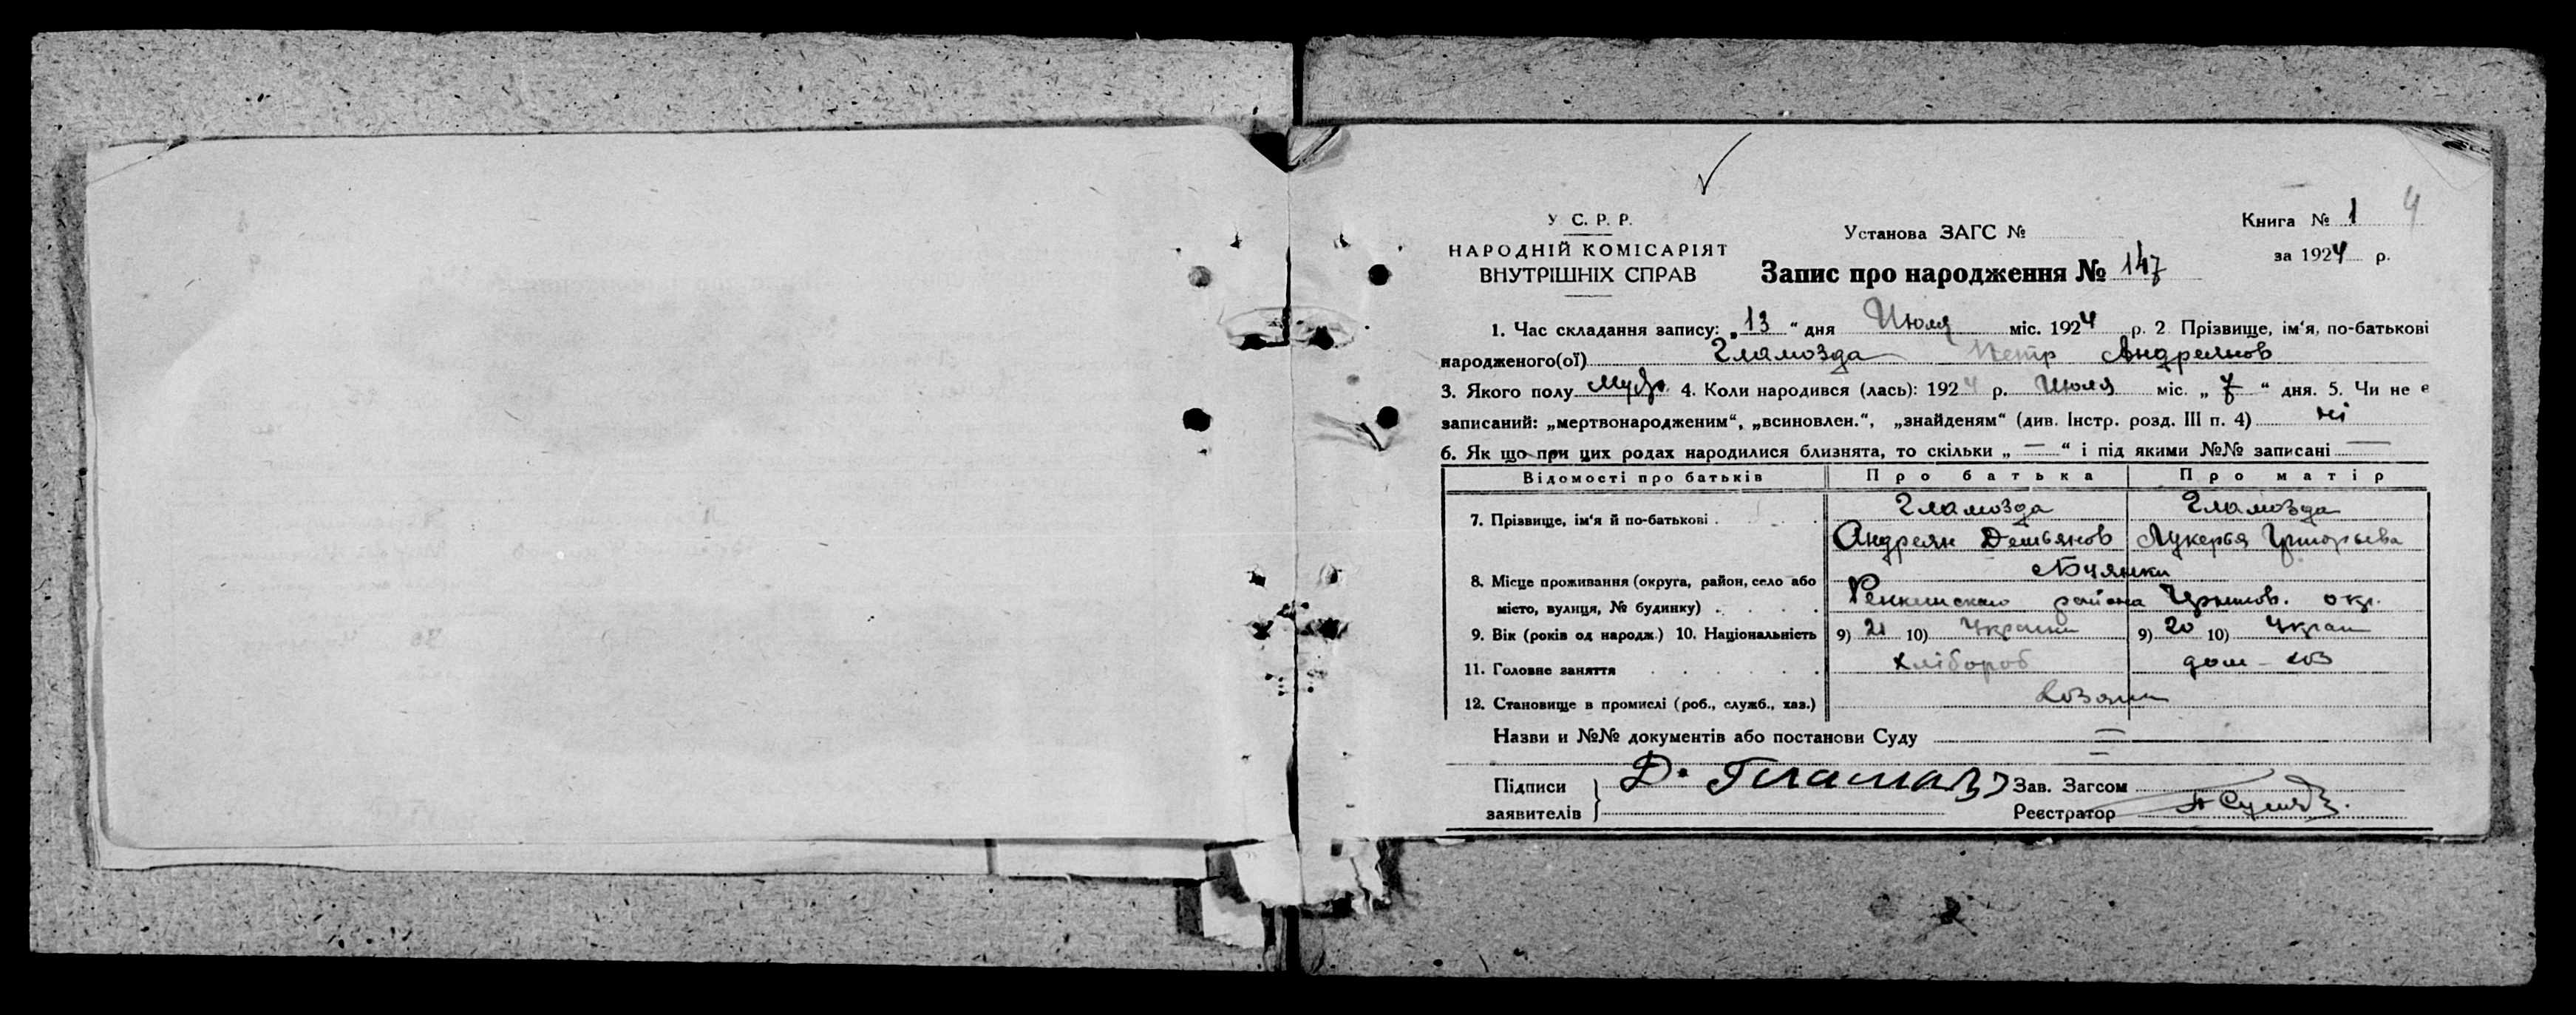 У С. Р. Р.
НАРОДНІЙ КОМІСАРІЯТ
ВНУТРІШНІХ СПРАВ
Установа ЗАГС №
Книга № 1 4
за 1924 р.
Запис про народження № 147
1. Час складання запису: „13“ дня Июля міс. 1924 р. 2 Прізвище, ім‘я, по-батькові
народженого(ої) Гламозда Петр Андреянов
3. Якого полу муж. 4. Коли народився (лась): 1924 р. Июля міс. „7“ дня. 5. Чи не е
записаний: „мертвонародженим“, „всиновлен.“, „знайденям“ (див. Інстр. розд. III п. 4) ні
6. Як що при цих родах народилися близнята, то скільки „—“ і під якими №№ записані —
Відомості про батьків Про батька Про матір
7. Прізвище, ім‘я й по-батькові . Гламозда Гламозда
Андреян Демьянов Лукерья Григорьева
8. Місце проживання (округа, район, село або
місто, вулиця, № будинку) . района окр.
9. Вік (років од народж.) 10. Національність 9) 21 10) 9) 20 10)
11. Головне заняття хлібороб дом-хоз
12. Становище в промислі (роб., служб., хаз.)
Назви и №№ документів або постанови Суду
Підписи
заявителів
Д.
Зав. Загсом
Реєстратор